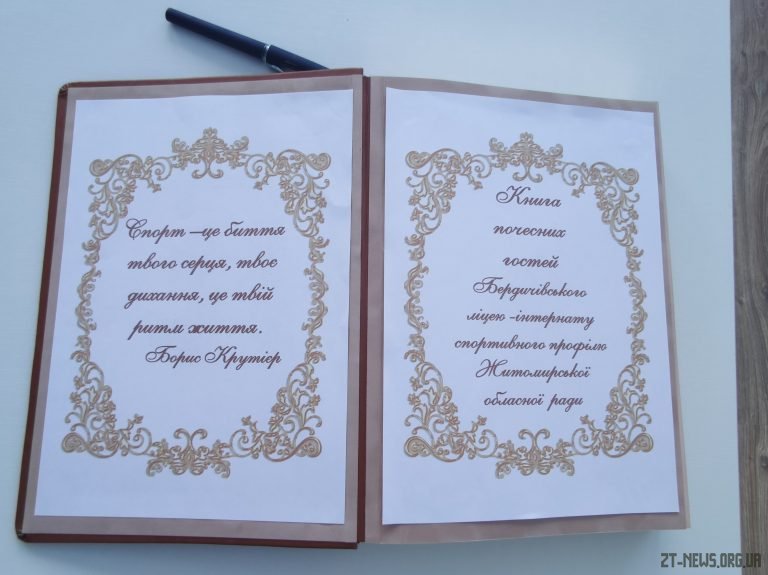 Спорт –це биття
твого серця, твоє
дихання, це твій
ритм життя.
Борис Крутієр
Книга
почесних
гостей
Бердичівського
ліцею -інтернату
спортивного профілю
Житомирської
обласної ради
ZT-NEWS.ORG.UA